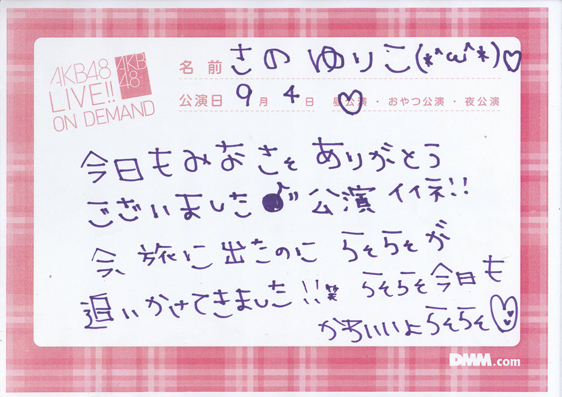 AKB48
LIVE!!
ON DEMAND
AKB
48
名前 きのゆりこ(*^ω^*)♡
公演日 9月4日 昼公演・おやつ公演・夜公演
今日もみなさそ ありがとう
ございました♪" 公演イイネ!!
今、旅に出たのに らそらそが
追いかけてきました!!笑 らそらそ今日も
かわいいよらそらそ♡
DMM.com